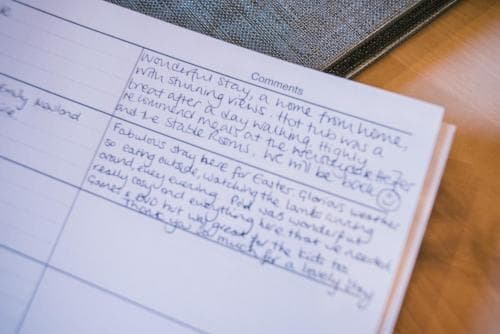 Comments
Wonderful stay, a home from home,
with stunning views. Hot tub was a
treat after a day walking. Highly
recommend meals at the
and the Stable Rooms. We will be back
Fabulous stay here for Easter. Glorious weather
so eating outside, watching the lambs running
around, every evening. Pod was wonderful
really cosy and everything here that we needed
Games & DVD hut was great for the kids too.
Thank you so much for a lovely stay